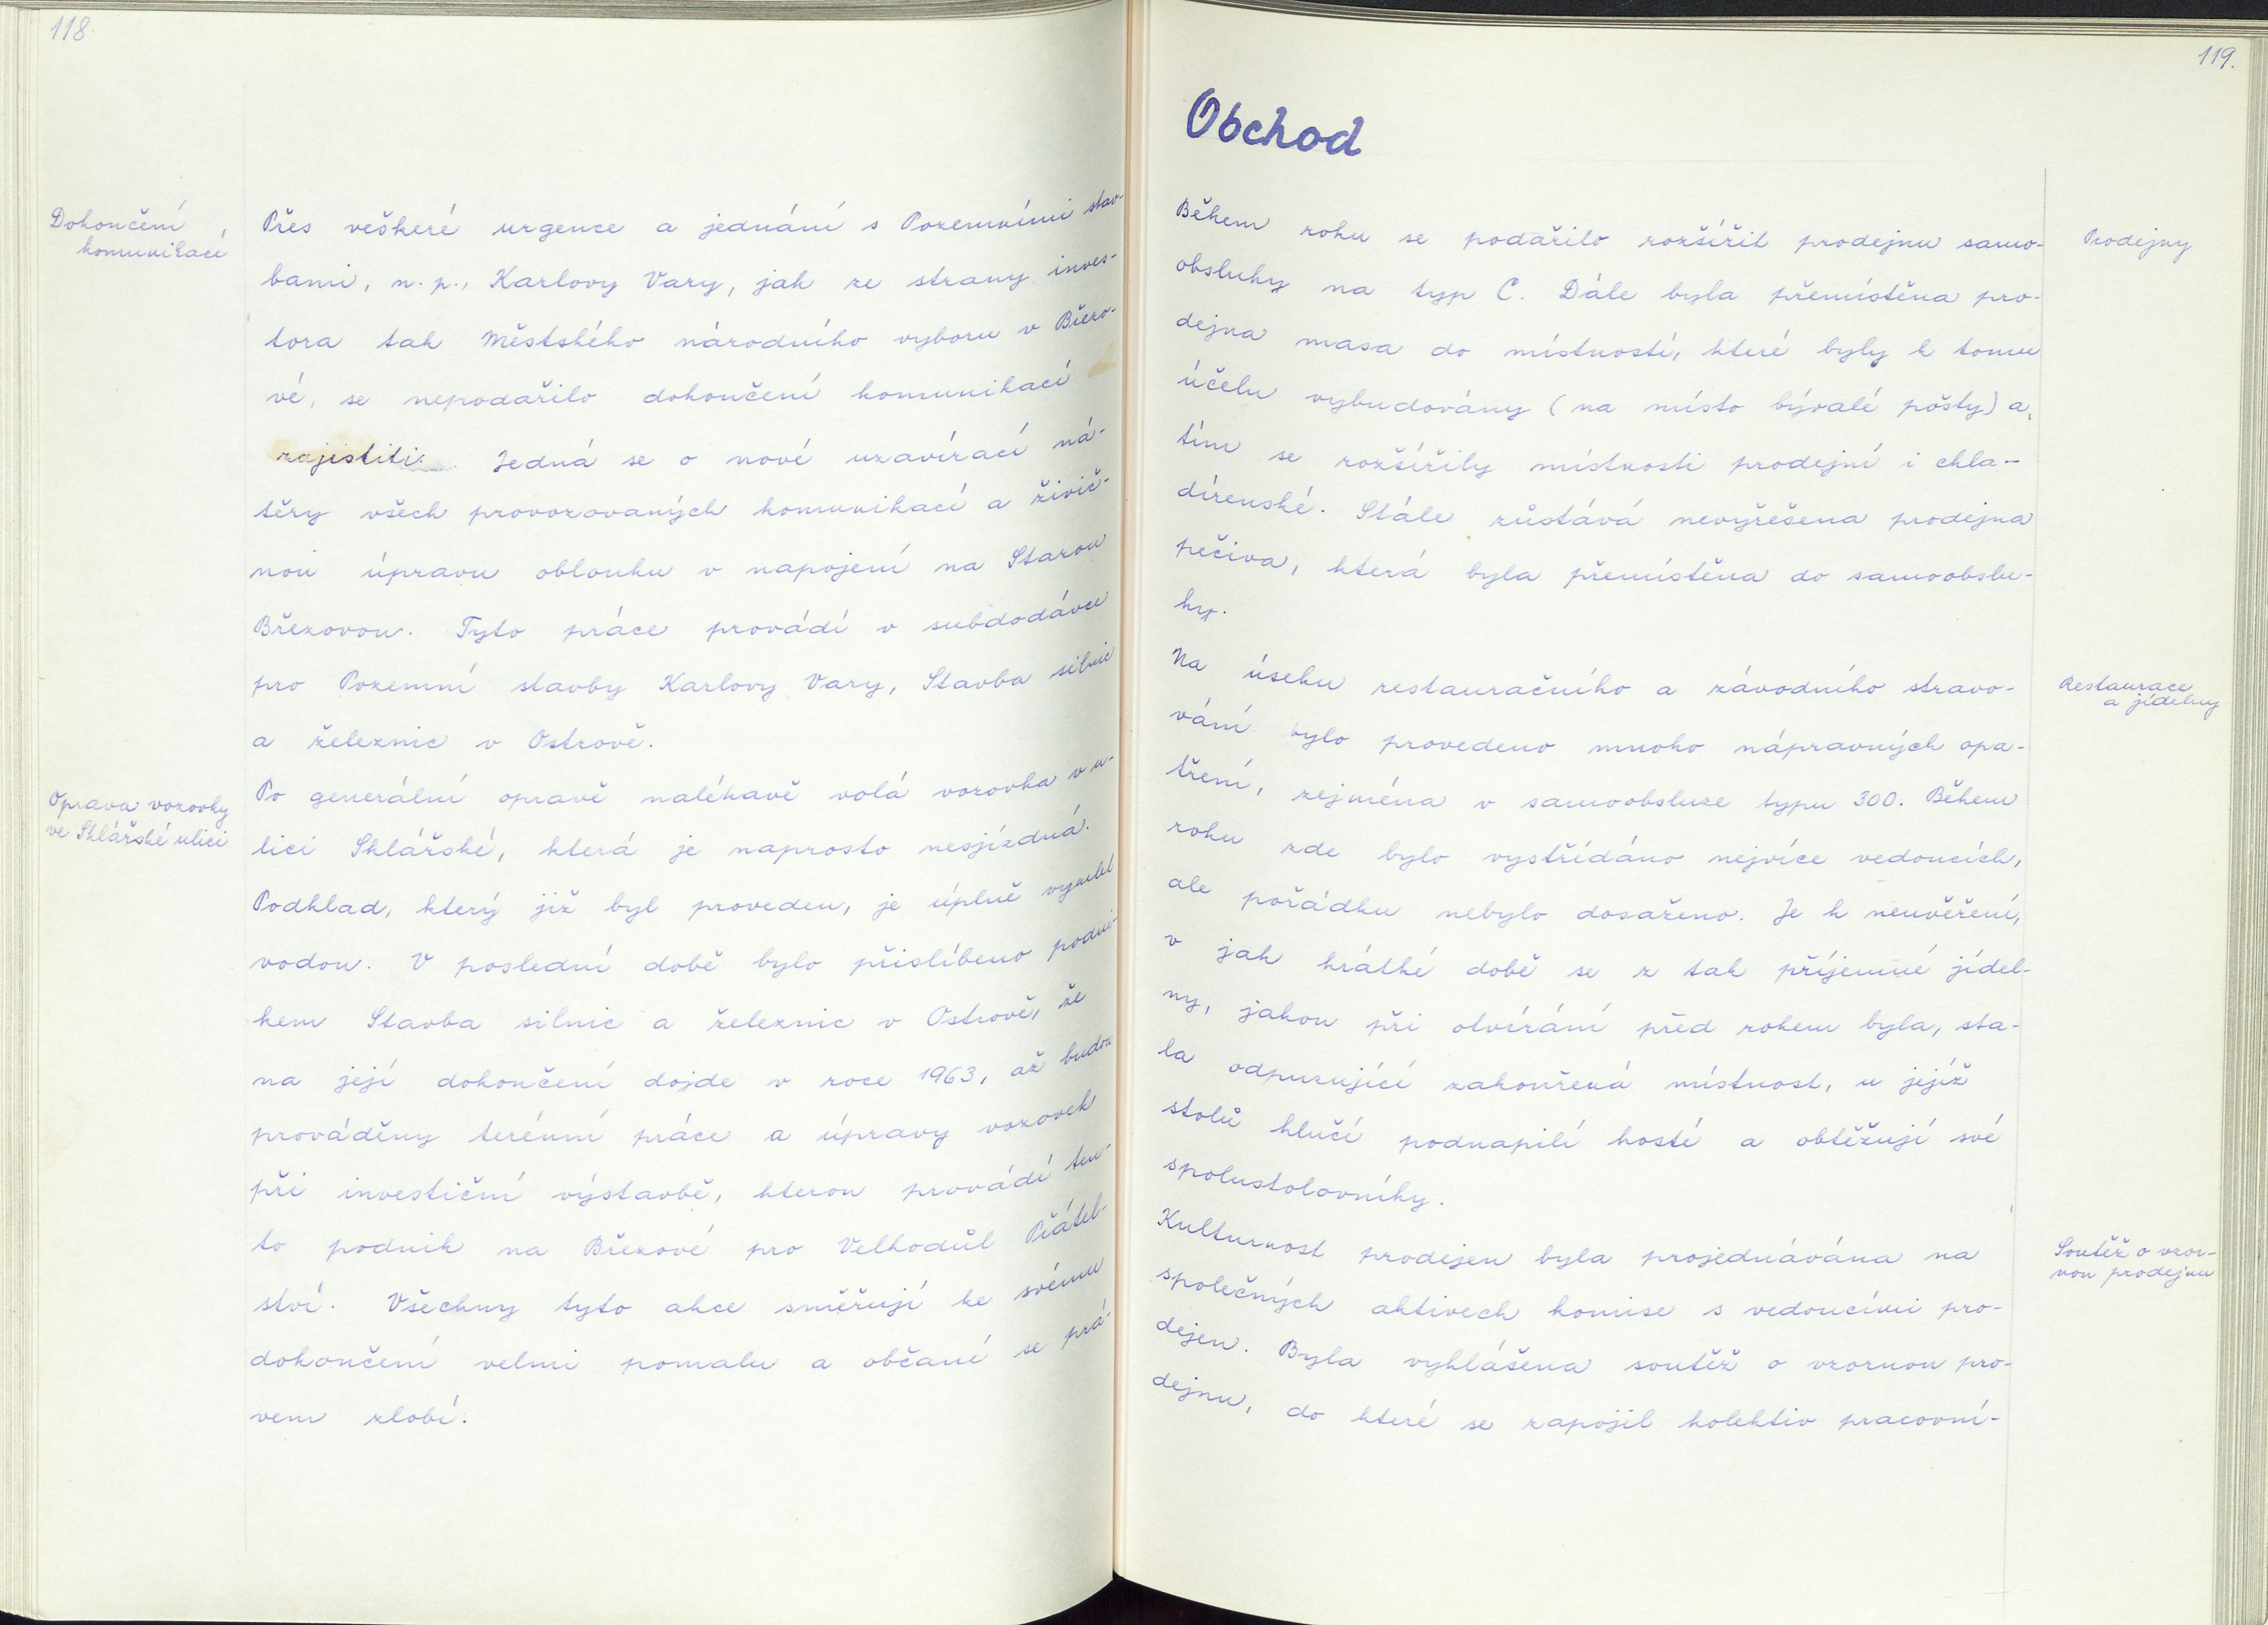 118
Dokončení
komunikací
Přes veškeré urgence a jednání s Pozemními stav-
bami, n. p., Karlovy Vary, jak ze strany inves-
tora tak Městského národního vyboru v Březo-
vé, se nepodařilo dokončení komunikací
zajistiti. Jedná se o nové uzavírací ná-
těry všech provozovaných komunikací a živič-
nou úpravu oblouku v napojení na Starou
Březovou. Tyto práce provádí v subdodávce
pro Pozemní stavby Karlovy Vary, Stavba silnic
a železnic v Ostrově.
Oprava vozovky
ve Sklářské ulici
Po generální opravě naléhavě volá vozovka v u-
lici Sklářské, která je naprosto nesjízdná.
Podklad, který již byl proveden, je úplně vymlet
vodou. V poslední době bylo přislíbeno podni-
kem Stavba silnic a železnic v Ostrově, že
na její dokončení dojde v roce 1963, až budou
prováděny terénní práce a úpravy vozovek
při investiční výstavbě, kterou provádí ten-
to podnik na Březové pro Velkodůl Přátel-
ství. Všechny tyto akce směřují ke svému
dokončení velmi pomalu a občané se prá-
vem zlobí.
119.
Obchod
Prodejny
Během roku se podařilo rozšířit prodejnu samo-
obsluhy na typ C. Dále byla přemístěna pro-
dejna masa do místností, které byly k tomu
účelu vybudovány (na místo bývalé pošty) a
tím se rozšířily místnosti prodejní i chla-
dírenské. Stále zůstává nevyřešena prodejna
pečiva, která byla přemístěna do samoobslu-
hy.
Restaurace
a jídelny
Na úseku restauračního a závodního stravo-
vání bylo provedeno mnoho nápravných opa-
tření, zejména v samoobsluze typu 300. Během
roku zde bylo vystřídáno nejvíce vedoucích,
ale pořádku nebylo dosaženo. Je k neuvěření,
v jak krátké době se z tak příjemné jídel-
ny, jakou při otvírání před rokem byla, sta-
la odpuzující zakouřená místnost, u jejíž
stolů hlučí podnapilí hosté a obtěžují své
spolustolovníky.
Soutěž o vzor-
nou prodejnu
Kulturnost prodejen byla projednávána na
společných aktivech komise s vedoucími pro-
dejen. Byla vyhlášena soutěž o vzornou pro-
dejnu, do které se zapojil kolektiv pracovní-